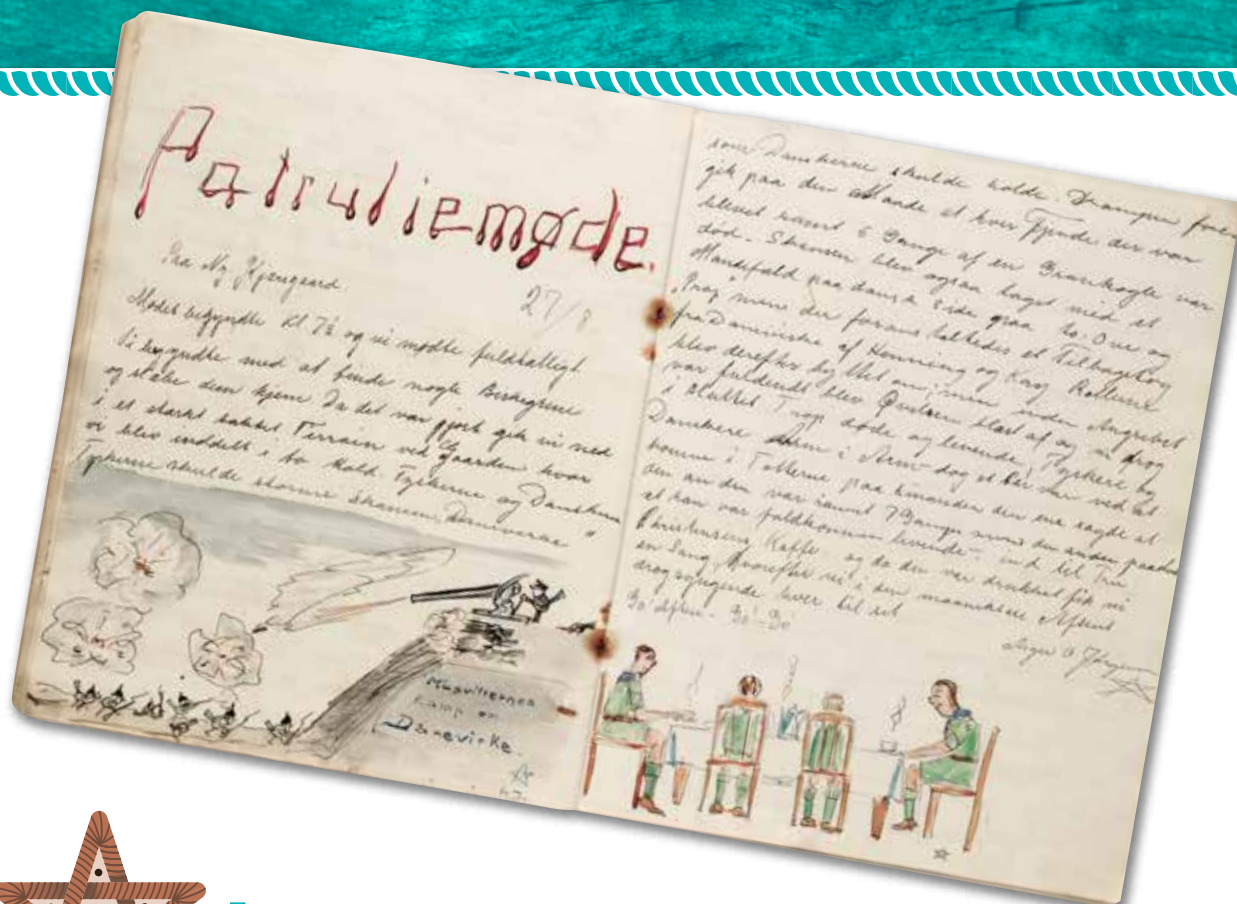 Patruljemøde.
Paa Ny Kjærgaard.
27/8
Mødet begyndte Kl 7½ og vi mødte fuldtalligt
Vi begyndte med at binde nogle Birkegrene
og slæbe dem hjem Da det var gjort gik vi ned
i et stærkt bakket Terrain ved Gaarden hvor
vi blev inddelt i to Hold. Tyskerne og Danskerne
Tyskerne skulde storme Skansen, Dannevirke"
Kamp om
Dannevirke.
som Danskerne skulde holde. Krampen fore-
gik paa den Maade at hver Fjende der var
blevet ramt 6 Gange af en Grankogle var
død. Skansen blev ogsaa taget med et
Mandefald paa dansk Side paa to. Ove og
"Prag" mens der forans holdtes et Tilbagetog
fra Dannevirke af Henning og Kaj Rollerne
blev derefter byttet om; men inden Angrebet
var fuldendt blev Øvelsen blæst af og vi drog
i sluttet Trop døde og levende, Tyskere og
Danskere hjem i Arm dog at Per var ved at
komme i Totterne paa hinanden den ene sagde at
den anden var ramt 7 Gange mens den anden paastod
at han var fuldkommen levende - ind til Fru
Christensens Kaffe, og da den var drukket fik vi
en Sang, hvorefter vi i den maaneklare Aften
drog syngende hver til sit
Go' Aften - Go'! - Go